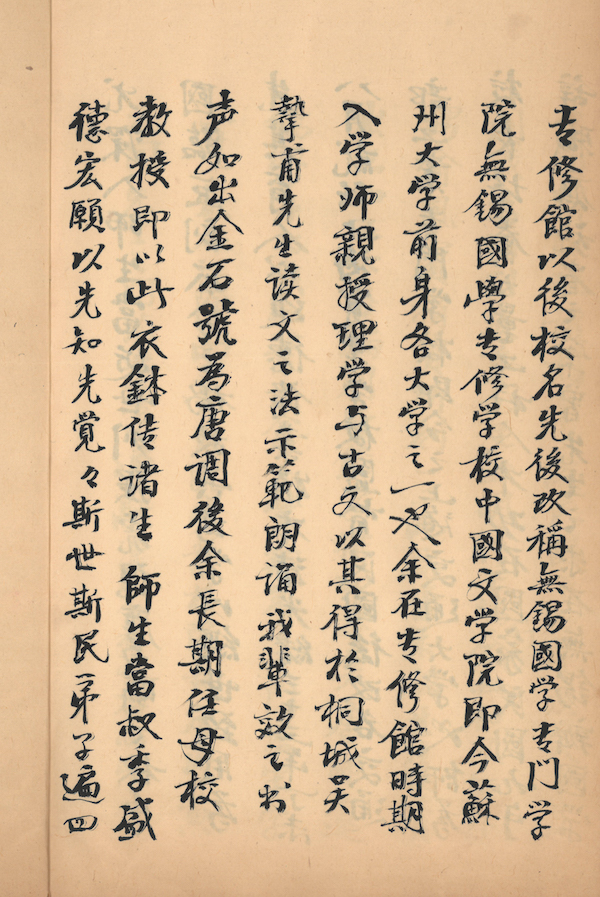 专修館以後校名先後改稱無錫國学专门学
院無錫國學专修学校中國文学院即今蘇
州大学前身各大学之一也余在专修館時期
入学师親授理学与古文以其得於桐城吴
摯甫先生读文之法示範朗誦我輩效之出
声如出金石號為唐调後余長期任母校
教授即以此衣鉢传诸生 師生當叔季盛
德宏願以先知先覚々斯世斯民弟子遍四